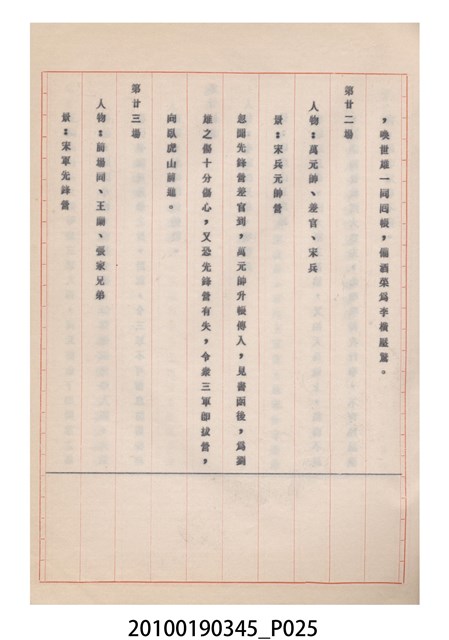 ，喚世雄一同回帳，備酒菜為李廣壓驚。
第廿二場
人物：萬元帥、差官、宋兵
景：宋兵元帥營
忽聞先鋒營差官到，萬元帥升帳傳入，見書函後，為劉
雄之傷十分傷心，又恐先鋒營有失，令眾三軍即拔營，
向臥虎山前進。
第廿三場
人物：前場同、王廟、張家兄弟
景：宋軍先鋒營
20100190345_P025